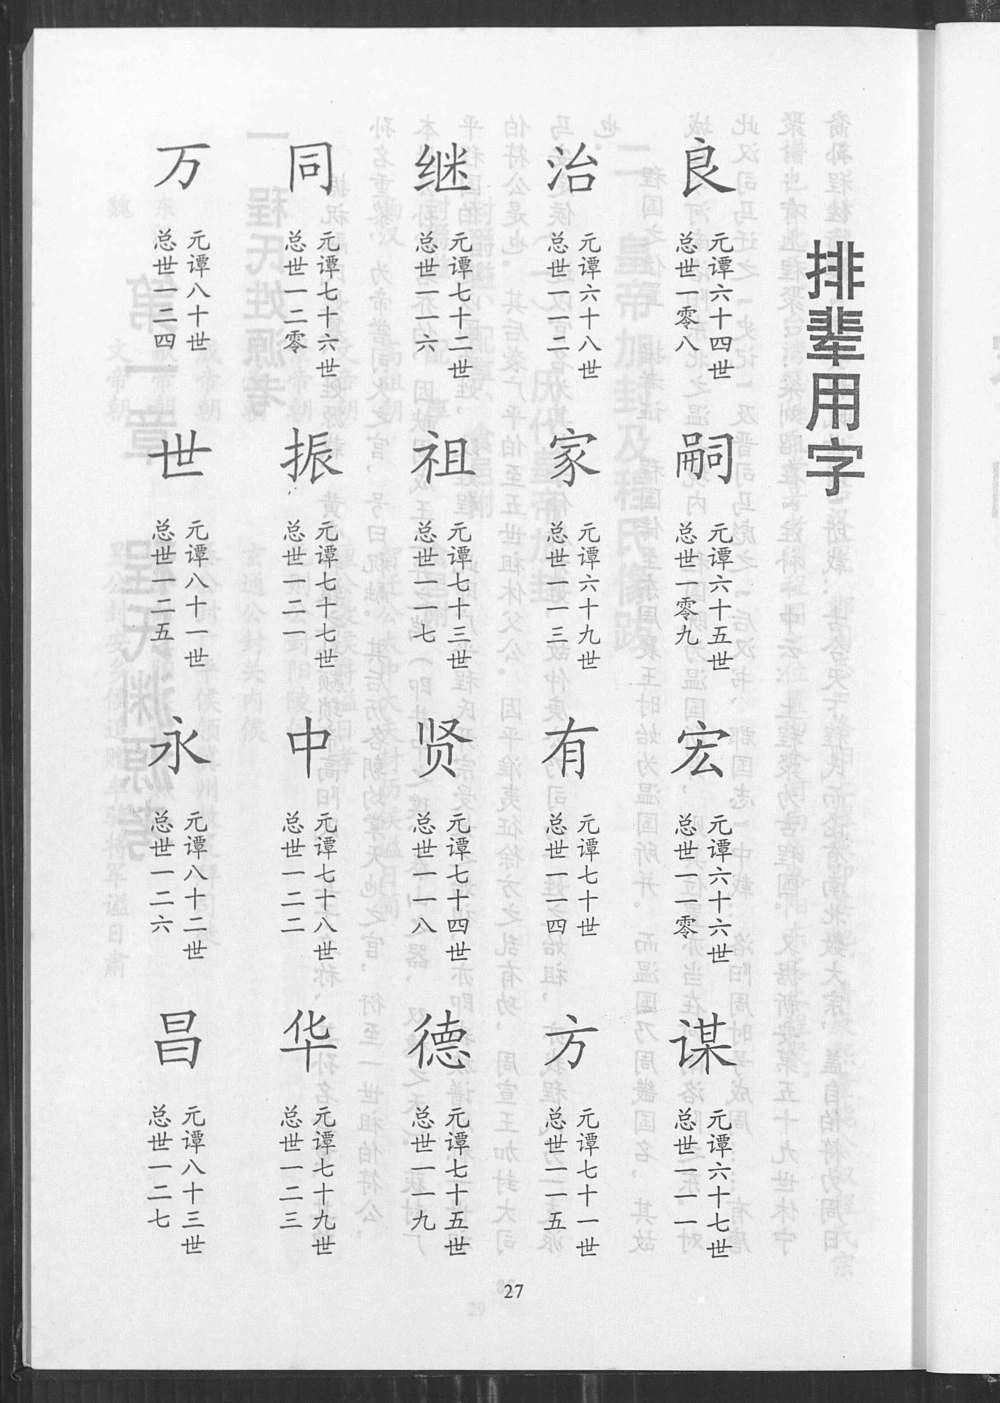 排辈用字
良
元谭六十四世
总世一零八
嗣
元谭六十五世
总世一零九
宏
元谭六十六世
总世一一零
谋
元谭六十七世
总世一一一
治
元谭六十八世
总世一一二
家
元谭六十九世
总世一一三
有
元谭七十世
总世一一四
方
元谭七十一世
总世一一五
继
元谭七十二世
总世一一六
祖
元谭七十三世
总世一一七
贤
元谭七十四世
总世一一八
德
元谭七十五世
总世一一九
同
元谭七十六世
总世一二零
振
元谭七十七世
总世一二一
中
元谭七十八世
总世一二二
华
元谭七十九世
总世一二三
万
元谭八十世
总世一二四
世
元谭八十一世
总世一二五
永
元谭八十二世
总世一二六
昌
元谭八十三世
总世一二七
27